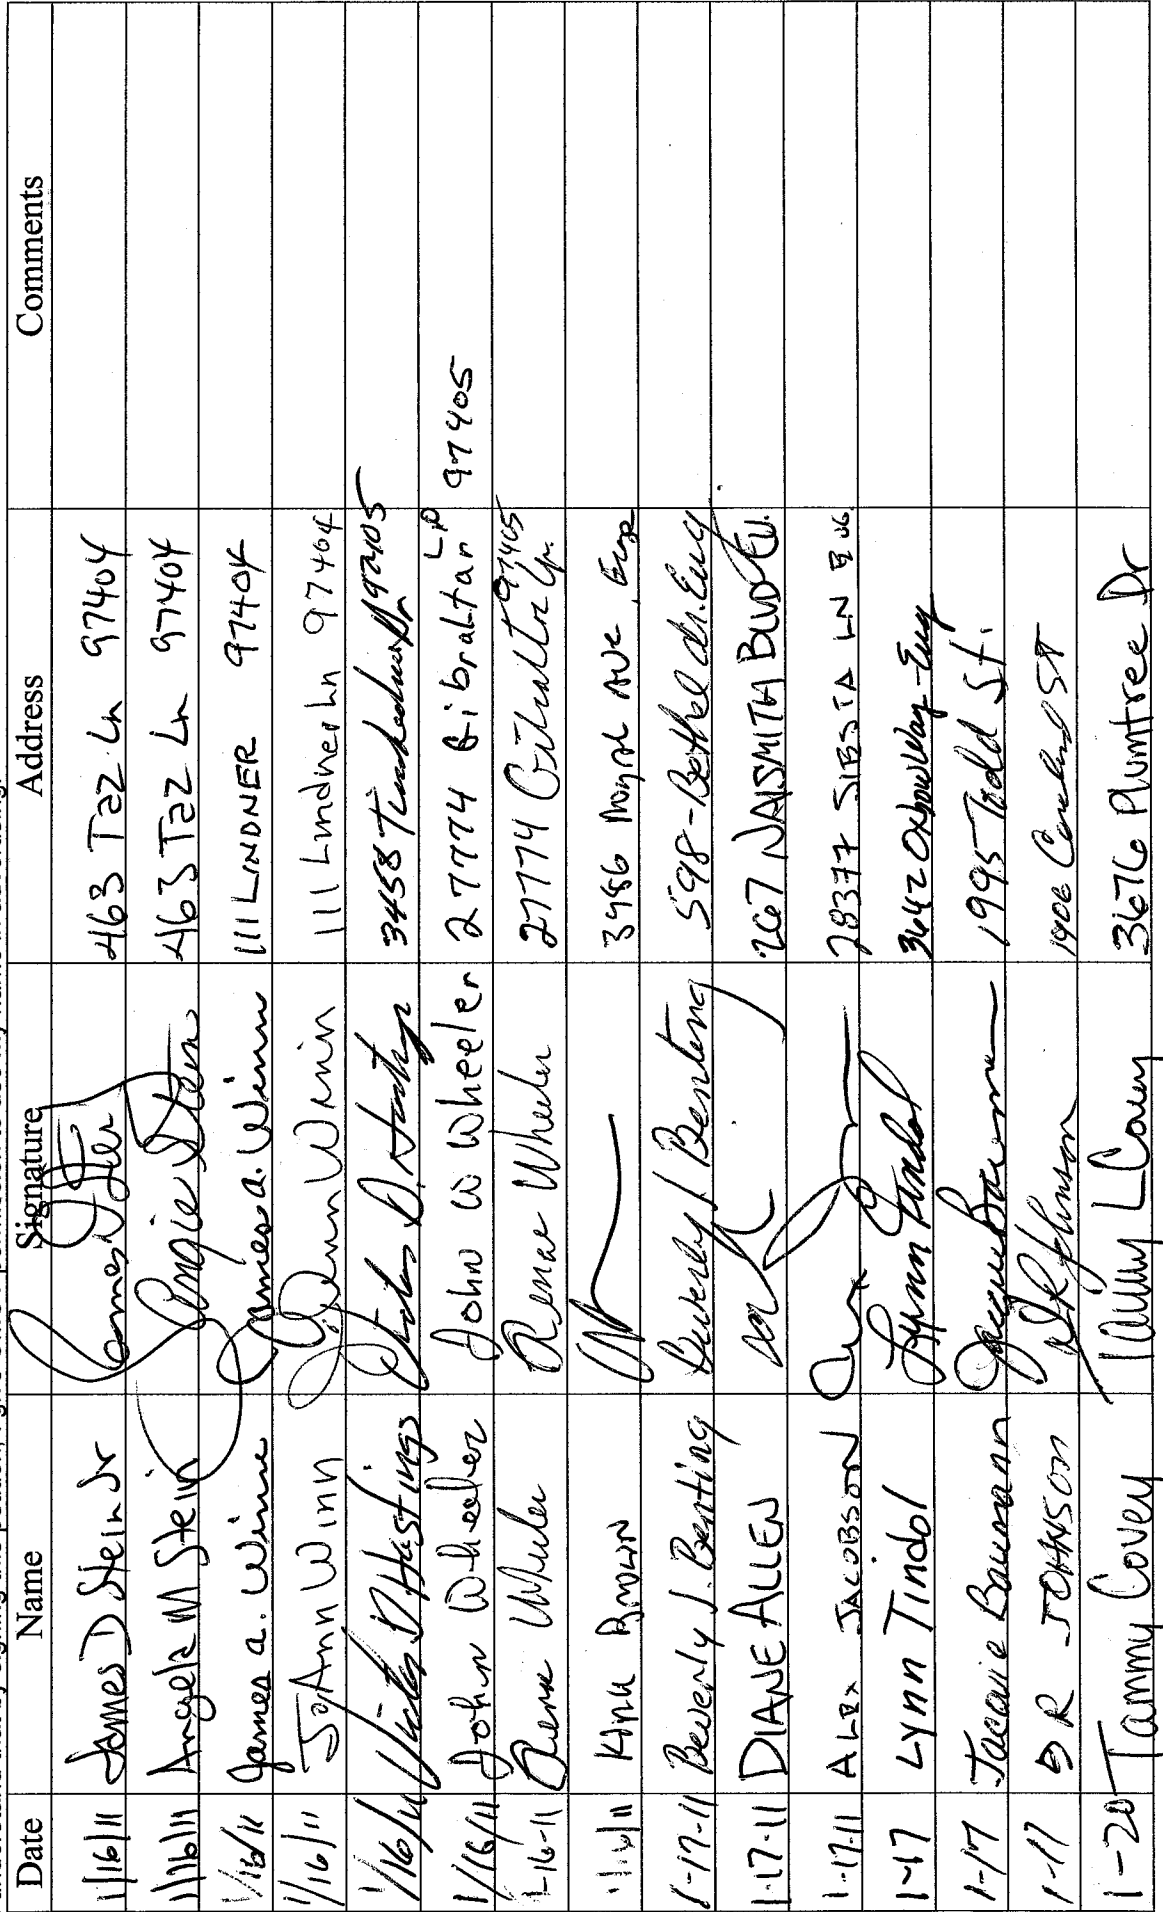 understand that by signing this petition, I give
Date Name Signature Address Comments
1/16/11 James D Stein Jr 463 Taz Ln 97404
1/16/11 Angela M Stein Angie Stein 463 Taz Ln 97404
1/16/11 James a. Winn James a. Winn 111 LINDNER 97404
1/16/11 JoAnn Winn JoAnn Winn 111 Lindner Ln 97404
1/16/11 D Hastings D. Hastings 3458 97405
1/16/11 John Wheeler John W Wheeler 27774 Gibraltar LP 97405
1-16-11 Renae Wheeler Renae Wheeler 27774 Gibraltar Lp. 97405
1/16/11 Brown 3986 AVE, Euge
1-17-11 Beverly J. Benting Beverly J Benting 598-Bethel dr. Eug
1-17-11 DIANE ALLEN 2667 NAISMITH BLVD EU.
1-17-11 ALEX JACOBSON 28377 SIESTA LN EUG.
1-17 Lynn Tindol Lynn Tindol 3642 Oxbow Way-Eug
1-17 Baumann 1995 Todd St.
1-17 DR JOHNSON DR Johnson 1906 ST
1-20 Tammy Covey Tammy Covey 3676 Plumtree Dr